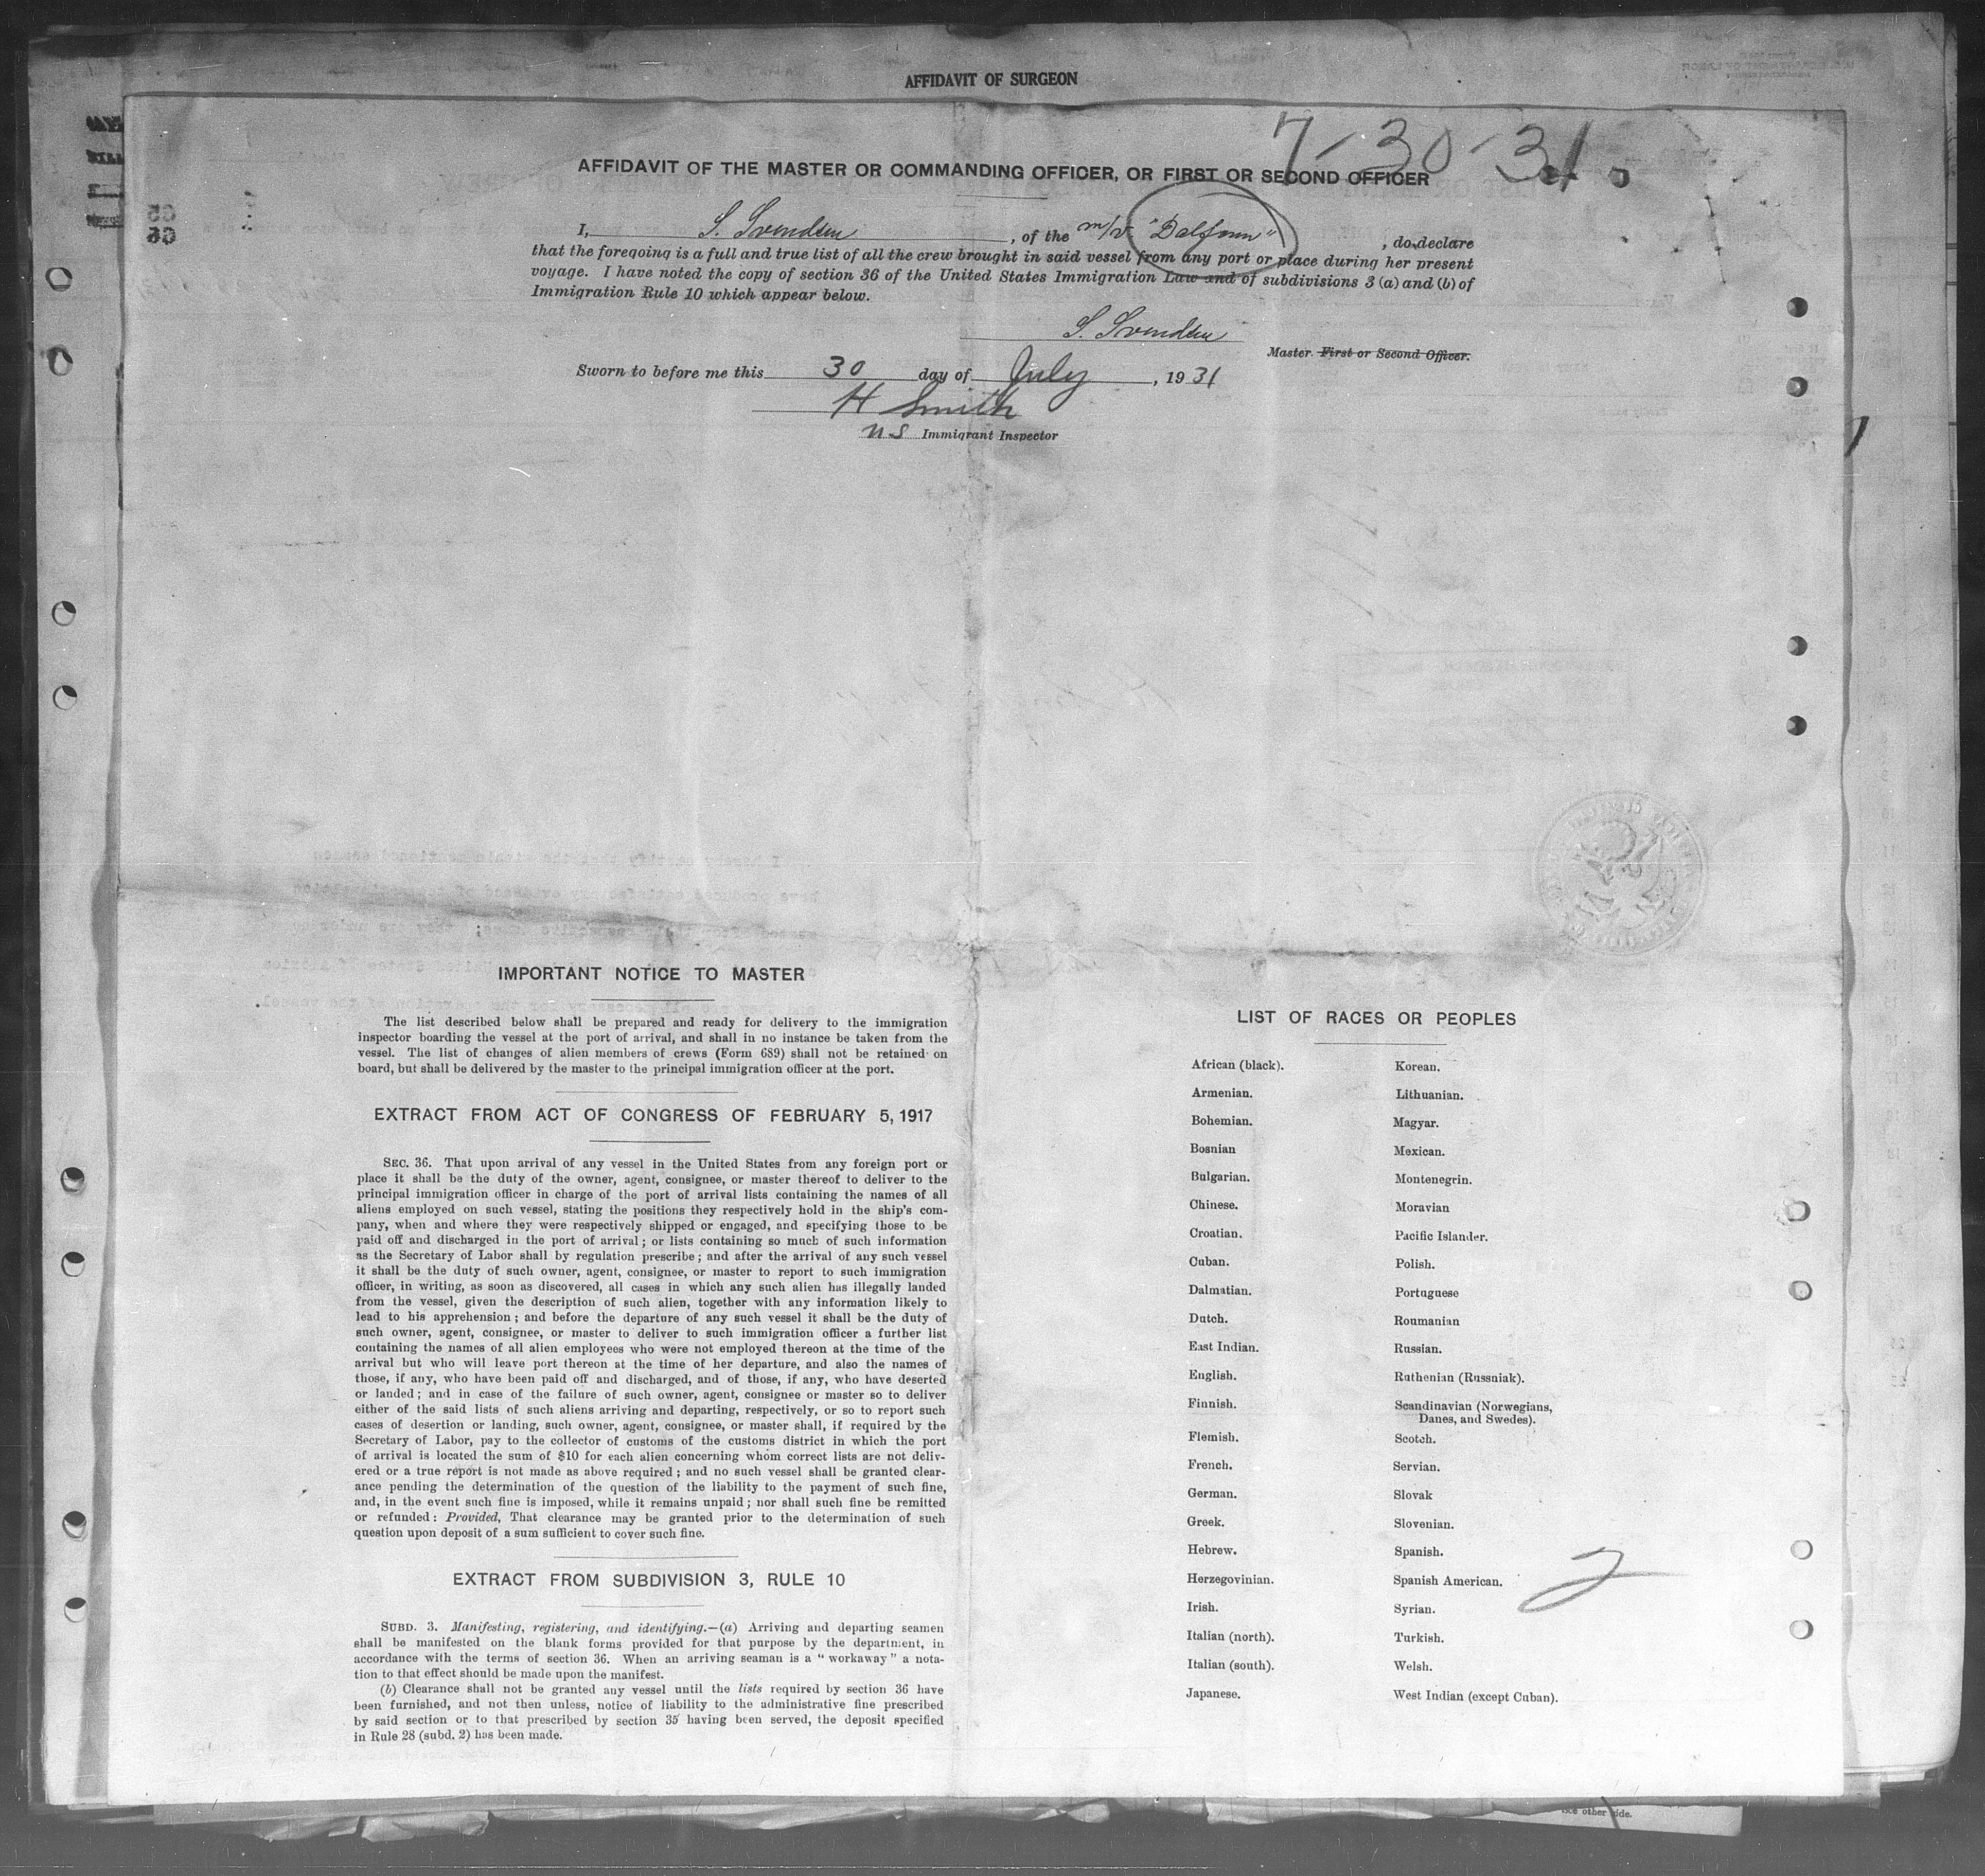 AFFIDAVIT OF SURGEON
7-30-31
AFFIDAVIT OF THE MASTER OR COMMANDING OFFICER, OR FIRST OR SECOND OFFICER
I, S. Svendsen, of the m/v "Dalfonn", do declare
that the foregoing is a full and true list of all the crew brought in said vessel from any port or place during her present
voyage. I have noted the copy of section 36 of the United States Immigration Law and of subdivisions 3 (a) and (b) of
Immigration Rule 10 which appear below.
S. Svendsen
Master First or Second Officer.
Sworn to before me this 30 day of July, 1931
H Smith
US Immigrant Inspector
IMPORTANT NOTICE TO MASTER
The list described below shall be prepared and ready for delivery to the immigration
inspector boarding the vessel at the port of arrival, and shall in no instance be taken from the
vessel. The list of changes of alien members of crews (Form 689) shall not be retained on
board, but shall be delivered by the master to the principal immigration officer at the port.
EXTRACT FROM ACT OF CONGRESS OF FEBRUARY 5, 1917
SEC. 36. That upon arrival of any vessel in the United States from any foreign port or
place it shall be the duty of the owner, agent, consignee, or master thereof to deliver to the
principal immigration officer in charge of the port of arrival lists containing the names of all
aliens employed on such vessel, stating the positions they respectively hold in the ship's com-
pany, when and where they were respectively shipped or engaged, and specifying those to be
paid off and discharged in the port of arrival; or lists containing so much of such information
as the Secretary of Labor shall by regulation prescribe; and after the arrival of any such vessel
it shall be the duty of such owner, agent, consignee, or master to report to such immigration
officer, in writing, as soon as discovered, all cases in which any such alien has illegally landed
from the vessel, given the description of such alien, together with any information likely to
lead to his apprehension; and before the departure of any such vessel it shall be the duty of
such owner, agent, consignee, or master to deliver to such immigration officer a further list
containing the names of all alien employees who were not employed thereon at the time of the
arrival but who will leave port thereon at the time of her departure, and also the names of
those, if any, who have been paid off and discharged, and of those, if any, who have deserted
or landed; and in case of the failure of such owner, agent, consignee or master so to deliver
either of the said lists of such aliens arriving and departing, respectively, or so to report such
cases of desertion or landing, such owner, agent, consignee, or master shall, if required by the
Secretary of Labor, pay to the collector of customs of the customs district in which the port
of arrival is located the sum of $10 for each alien concerning whom correct lists are not deliv-
ered or a true report is not made as above required; and no such vessel shall be granted clear-
ance pending the determination of the question of the liability to the payment of such fine,
and, in the event such fine is imposed, while it remains unpaid; nor shall such fine be remitted
or refunded: Provided, That clearance may be granted prior to the determination of such
question upon deposit of a sum sufficient to cover such fine.
EXTRACT FROM SUBDIVISION 3, RULE 10
SUBD. 3. Manifesting, registering, and identifying.—(a) Arriving and departing seamen
shall be manifested on the blank forms provided for that purpose by the department, in
accordance with the terms of section 36. When an arriving seaman is a "workaway" a nota-
tion to that effect should be made upon the manifest.
(b) Clearance shall not be granted any vessel until the lists required by section 36 have
been furnished, and not then unless, notice of liability to the administrative fine prescribed
by said section or to that prescribed by section 35 having been served, the deposit specified
in Rule 28 (subd. 2) has been made.
LIST OF RACES OR PEOPLES
African (black).
Armenian.
Bohemian.
Bosnian
Bulgarian.
Chinese.
Croatian.
Cuban.
Dalmatian.
Dutch.
East Indian.
English.
Finnish.
Flemish.
French.
German.
Greek.
Hebrew.
Herzegovinian.
Irish.
Italian (north).
Italian (south).
Japanese.
Korean.
Lithuanian.
Magyar.
Mexican.
Montenegrin.
Moravian
Pacific Islander.
Polish.
Portuguese
Roumanian
Russian.
Ruthenian (Russniak).
Scandinavian (Norwegians,
Danes, and Swedes).
Scotch.
Servian.
Slovak
Slovenian.
Spanish.
Spanish American.
Syrian.
Turkish.
Welsh.
West Indian (except Cuban).
2
other side.